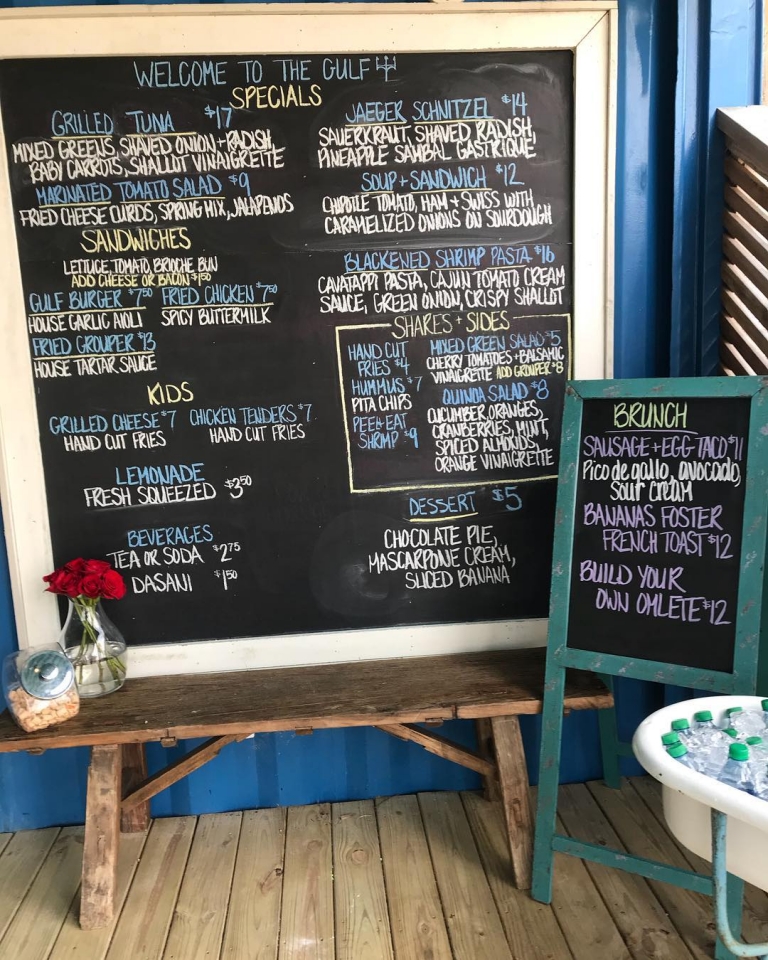 WELCOME TO THE GULF
SPECIALS
GRILLED TUNA $17
MIXED GREENS, SHAVED ONION + RADISH,
BABY CARROTS, SHALLOT VINAIGRETTE
MARINATED TOMATO SALAD $9
FRIED CHEESE CURDS, SPRING MIX, JALAPENOS
SANDWICHES
LETTUCE, TOMATO, BRIOCHE BUN
ADD CHEESE OR BACON $1.50
GULF BURGER $7.50 FRIED CHICKEN $7.50
HOUSE GARLIC AIOLI SPICY BUTTERMILK
FRIED GROUPER $13
HOUSE TARTAR SAUCE
KIDS
GRILLED CHEESE $7 CHICKEN TENDERS $7
HAND CUT FRIES HAND CUT FRIES
LEMONADE
FRESH SQUEEZED $3.50
BEVERAGES
TEA OR SODA $2.75
DASANI $1.50
JAEGER SCHNITZEL $14
SAUERKRAUT, SHAVED RADISH,
PINEAPPLE SAMBAL GASTRIQUE
SOUP + SANDWICH $12
CHIPOTLE TOMATO, HAM + SWISS WITH
CARAMELIZED ONIONS ON SOURDOUGH
BLACKENED SHRIMP PASTA $16
CAVATAPPI PASTA, CAJUN TOMATO CREAM
SAUCE, GREEN ONION, CRISPY SHALLOT
SHARES + SIDES
HAND CUT
FRIES $4
HUMMUS $7
PITA CHIPS
PEEL+EAT
SHRIMP $9
MIXED GREEN SALAD $5
CHERRY TOMATOES + BALSAMIC
VINAIGRETTE ADD GROUPER $8
QUINOA SALAD $8
CUCUMBER, ORANGES,
CRANBERRIES, MINT,
SPICED ALMONDS,
ORANGE VINAIGRETTE
DESSERT $5
CHOCOLATE PIE,
MASCARPONE CREAM,
SLICED BANANA
BRUNCH
SAUSAGE + EGG TACO $11
Pico de gallo, avocado,
Sour cream
BANANAS FOSTER
FRENCH TOAST $12
BUILD YOUR
OWN OMLETE $12